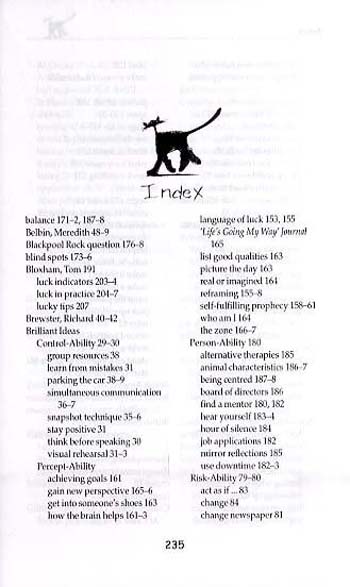 Index
balance 171–2, 187–8
Belbin, Meredith 48–9
Blackpool Rock question 176–8
blind spots 173–6
Bloxham, Tom 191
luck indicators 203–4
luck in practice 204–7
lucky tips 207
Brewster, Richard 40–42
Brilliant Ideas
Control-Ability 29–30
group resources 38
learn from mistakes 31
parking the car 38–9
simultaneous communication
36–7
snapshot technique 35–6
stay positive 31
think before speaking 30
visual rehearsal 31–3
Percept-Ability
achieving goals 161
gain new perspective 165–6
get into someone's shoes 163
how the brain helps 161–3
language of luck 153, 155
'Life's Going My Way' Journal
165
list good qualities 163
picture the day 163
real or imagined 164
reframing 155–8
self-fulfilling prophecy 158–61
who am I 164
the zone 166–7
Person-Ability 180
alternative therapies 185
animal characteristics 186–7
being centred 187–8
board of directors 186
find a mentor 180, 182
hear yourself 183–4
hour of silence 184
job applications 182
mirror reflections 185
use downtime 182–3
Risk-Ability 79–80
act as if ... 83
change 84
change newspaper 81
235